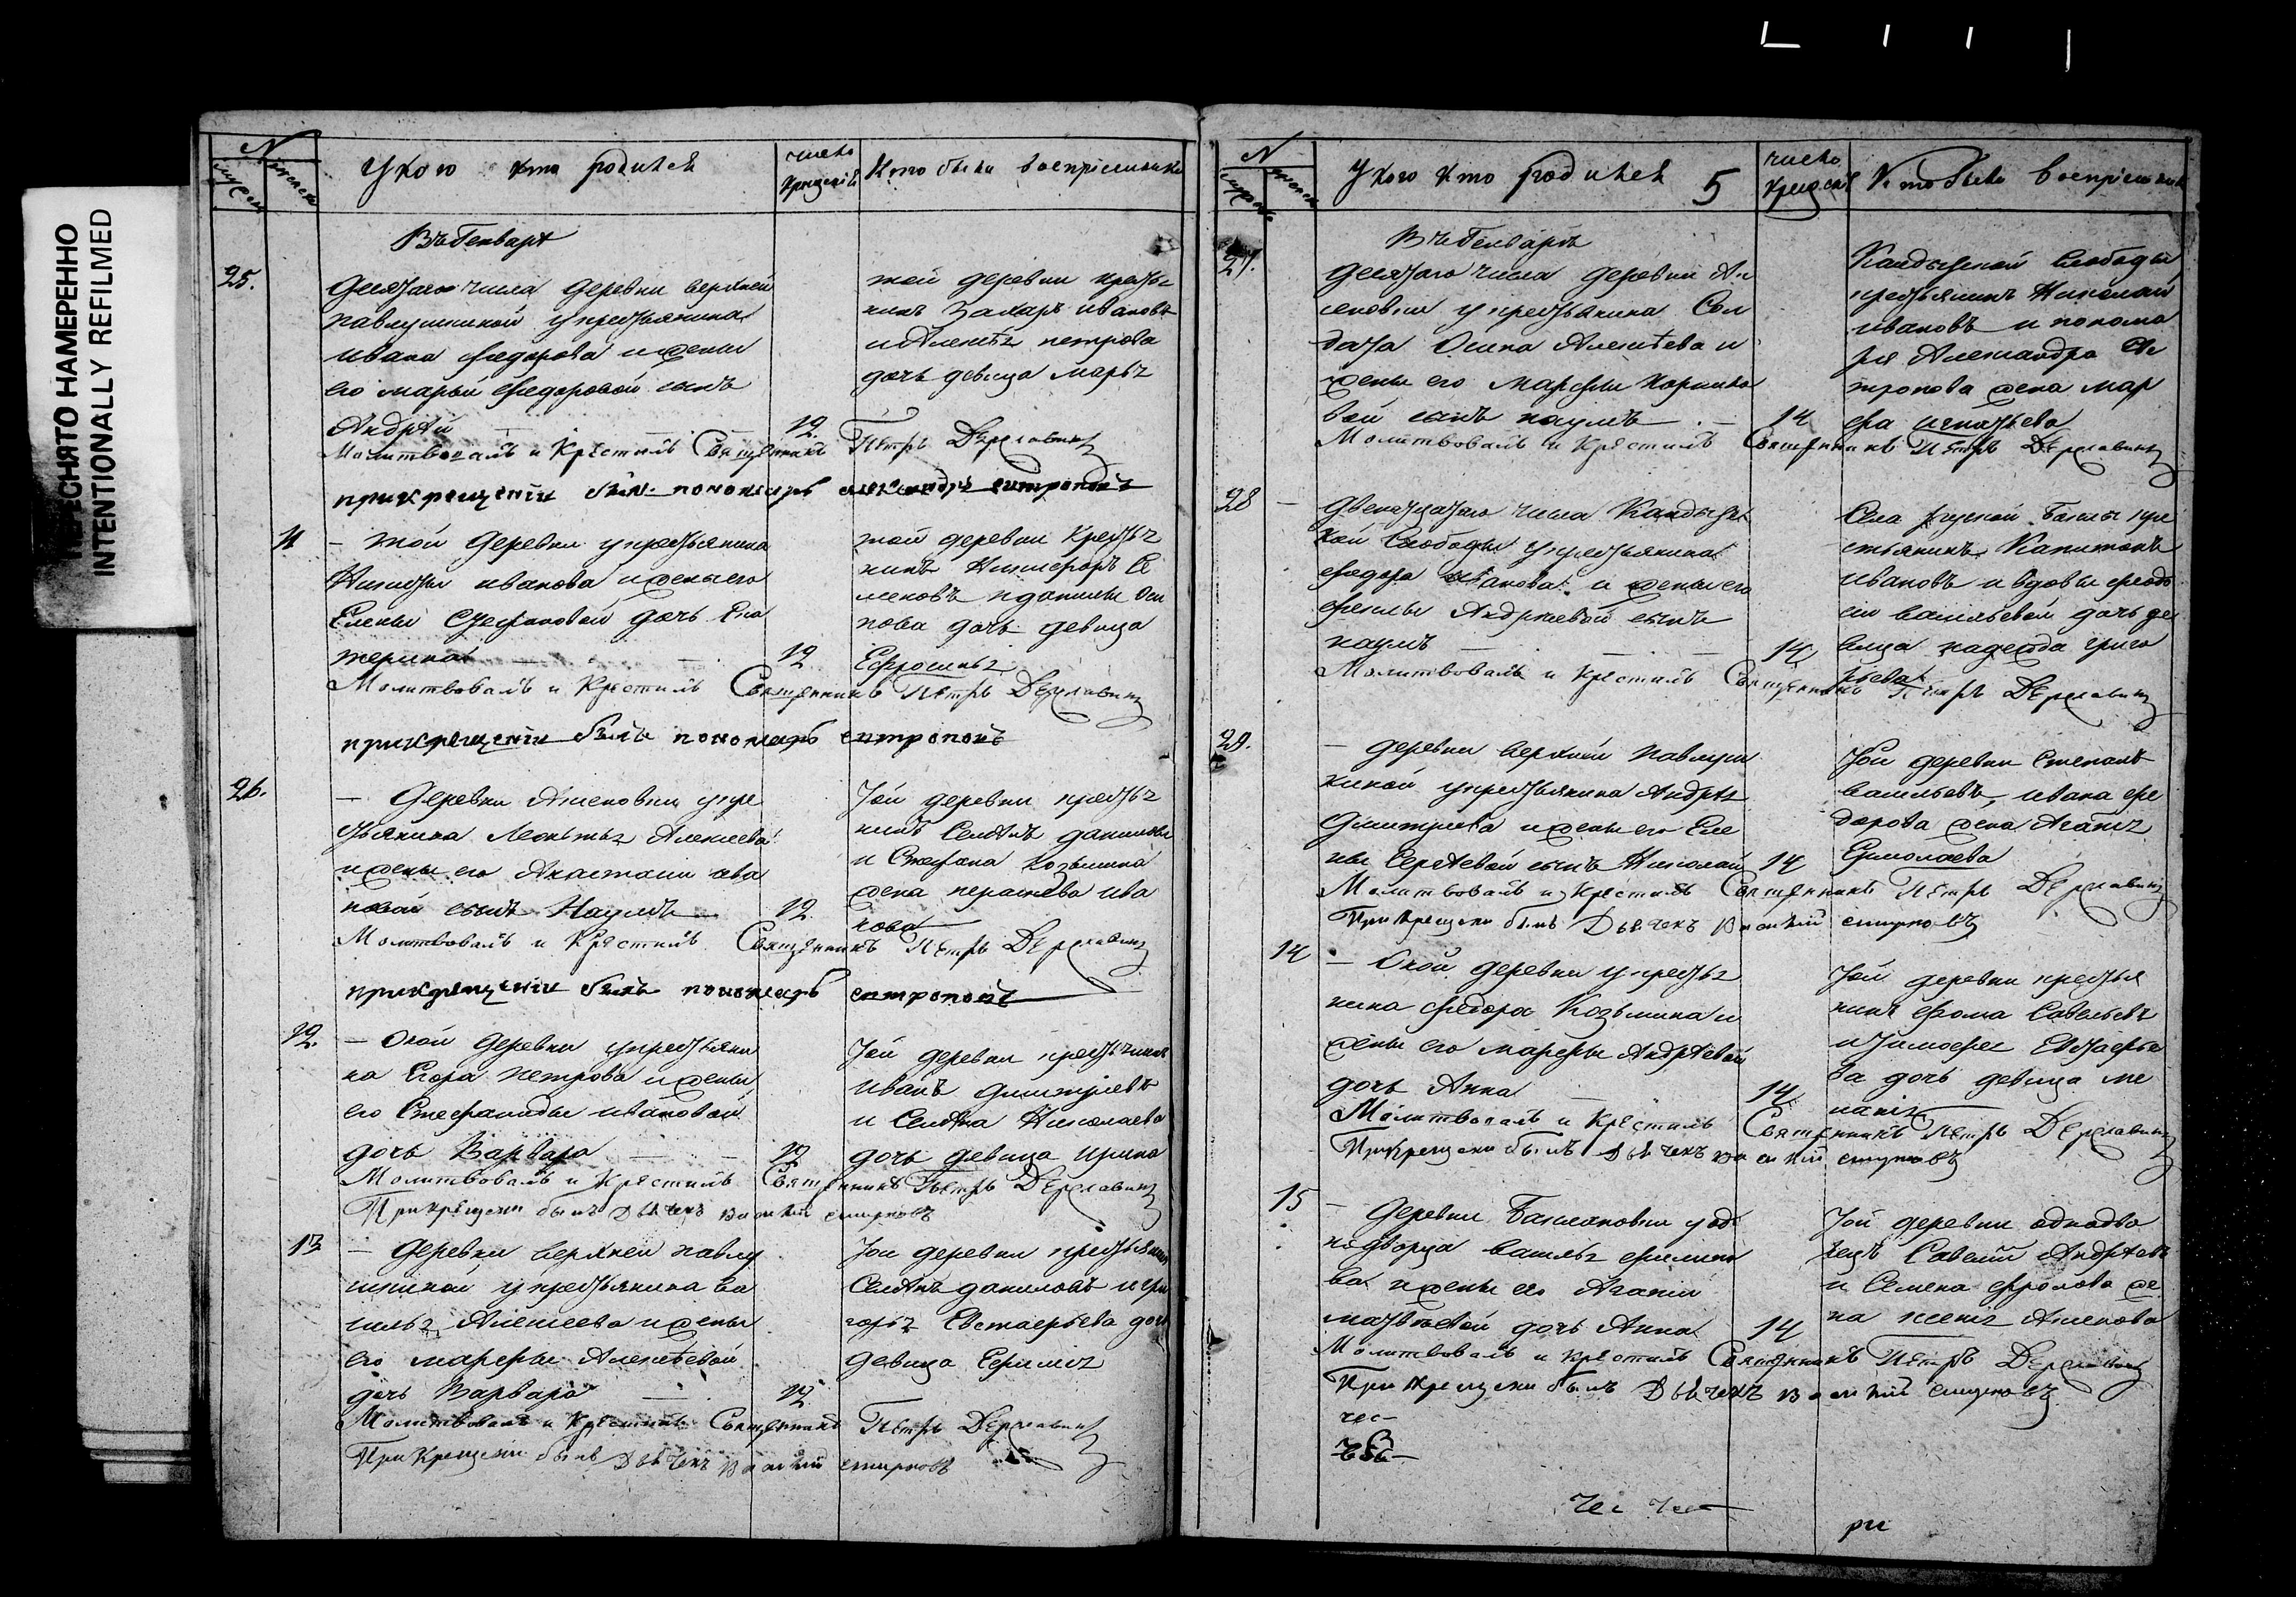 ПЕРЕСНЯТО НАМЕРЕННО
INTENTIONALLY REFILMED
N
У кого кто родился
число крещенія
Кто были воспріемники
Въ Генварѣ
25.
Десятаго числа деревни верхней
павлушкиной у крестьянина
ивана федорова и жены
его марьи федоровой сынъ
Андрѣй
12.
той деревни кресть
нинъ Захаръ ивановъ
и Алексѣя петрова
дочь девица марья
Молитвовалъ и Крестилъ Священникъ Петръ Державинъ
при крещеніи былъ пономарь александръ
11
— той деревни у крестьянина
Никиты иванова и жены его
Елены Стефановой дочь Ека
терина
12
той деревни Кресть
нинъ Никифоръ Се
меновъ и данилы Оси
пова дочь девица
Ефросинья
Молитвовалъ и Крестилъ Священникъ Петръ Державинъ
при крещеніи былъ пономарь
26.
— Деревни у кре
стьянина Леонтья Алексеева
и жены его Анастасіи ива
новой сынъ Наумъ
12
Той деревни кресть
нинъ Семенъ даниловъ
и Стефана козьмина
жена ива
нова
Молитвовалъ и Крестилъ Священникъ Петръ Державинъ
при крещеніи былъ пономарь
12.
— Оной деревни у крестьяни
на Егора петрова и жены
его Стефаниды ивановой
дочь Варвара
12
Той деревни
иванъ дмитріевъ
и Семена Николаева
дочь девица ирина
Молитвовалъ и Крестилъ Священникъ Петръ Державинъ
При крещеніи былъ Дьячекъ Василій смирновъ
13
— деревни верхней павлу
шкиной у крестьянина ва
силья Алексеева и жены
его марфы Алексѣевой
дочь Варвара
12
Той деревни крестьянинъ
Семенъ даниловъ и гри
горья Евстафьева дочь
девица Ефимія
Молитвовалъ и Крестилъ Священникъ Петръ Державинъ
При крещеніи былъ Дьячекъ Василій смирновъ
N
У кого кто родился
5
число крещенія
Кто были воспріемники
Въ Генварѣ
27.
Десятаго числа деревни Ак
сеновки у крестьянина Сол
дата Осипа Алексѣева и
жены его марфы
вой сынъ наумъ
14
слободы
крестьянинъ Николай
ивановъ и понома
ря Александра
жена мар
фа игнатьева
Молитвовалъ и Крестилъ Священникъ Петръ Державинъ
28
двенатцатаго числа
кой Слободы у крестьянина
федора иванова и жены его
феклы Андреевой сынъ
наумъ
14
Села кре
стьянинъ Капитонъ
ивановъ и вдовы федо
сьи васильевой дочь де
вица надежда григо
рьева
Молитвовалъ и Крестилъ Священникъ Петръ Державинъ
29.
— деревни верхней павлуш
киной у крестьянина Андрея
Дмитриева и жены его Еле
ны Сергѣевой сынъ Николай
14
Той деревни Степанъ
васильевъ, ивана фе
дорова жена Агафья
Ермолаева
Молитвовалъ и Крестилъ Священникъ Петръ Державинъ
При крещени былъ Дьячекъ Василій смирновъ
14
— Оной деревни у кресть
нина федора Козьмина и
жены его марфы Андрѣевой
дочь Анна
14
Той деревни крестья
нинъ фома Савельевъ
и тимофея Евстафье
ва дочь девица ме
ланія
Молитвовалъ и Крестилъ Священникъ Петръ Державинъ
При крещени былъ Дьячекъ Василій смирновъ
15
— Деревни у од
нодворца василья филипо
ва и жены его Агафіи
матвѣевой дочь Анна
14
Той деревни однодво
рецъ Савелій Андрѣевъ
и Семена фролова же
на
Молитвовалъ и Крестилъ Священникъ Петръ Державинъ
При крещени былъ Дьячекъ Василій смирновъ